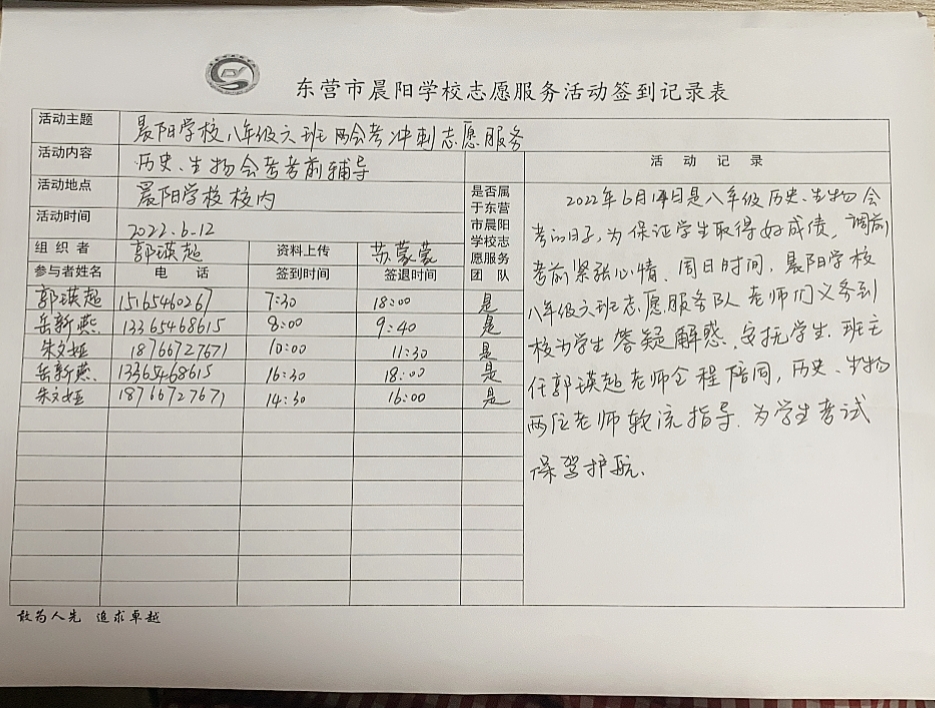 东营市晨阳学校志愿服务活动签到记录表
活动主题 晨阳学校八年级六班两会考冲刺志愿服务
活动内容 历史、生物会考考前辅导
活动地点 晨阳学校校内
活动时间 2022.6.12
组织者 郭瑛超 资料上传 苏蒙蒙
参与者姓名 电话 签到时间 签退时间
是否属
于东营
市晨阳
学校志
愿服务
团队
郭瑛超 15165460267 7:30 18:00 是
岳新燕 13365468615 8:00 9:40 是
朱文娅 18766727671 10:00 11:30 是
岳新燕 13365468615 16:30 18:00 是
朱文娅 18766727671 14:30 16:00 是
活动记录
2022年6月14日是八年级历史、生物会
考的日子,为保证学生取得好成绩,调剂
考前紧张心情,周日时间,晨阳学校
八年级六班志愿服务队老师们义务到
校为学生答疑解惑、安抚学生.班主
任郭瑛超老师全程陪同,历史、生物
两位老师轮流指导.为学生考试
保驾护航.
敢为人先 追求卓越